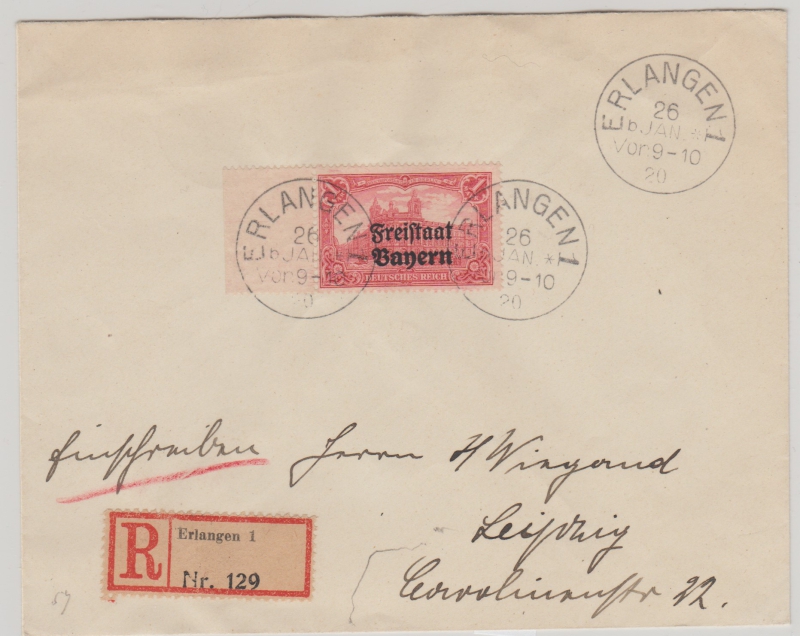 ERLANGEN 1
26
JAN. *
Vor. 9-10
20
ERLANGEN 1
26
JAN
Vor. 9-10
20
1
1
Freistaat
Bayern
DEUTSCHES REICH
ERLANGEN 1
26
JAN. *
9-10
20
Einschreiben
Herrn H Wiegand
Leipzig
Carolinenstr 22.
R
Erlangen 1
Nr. 129
57